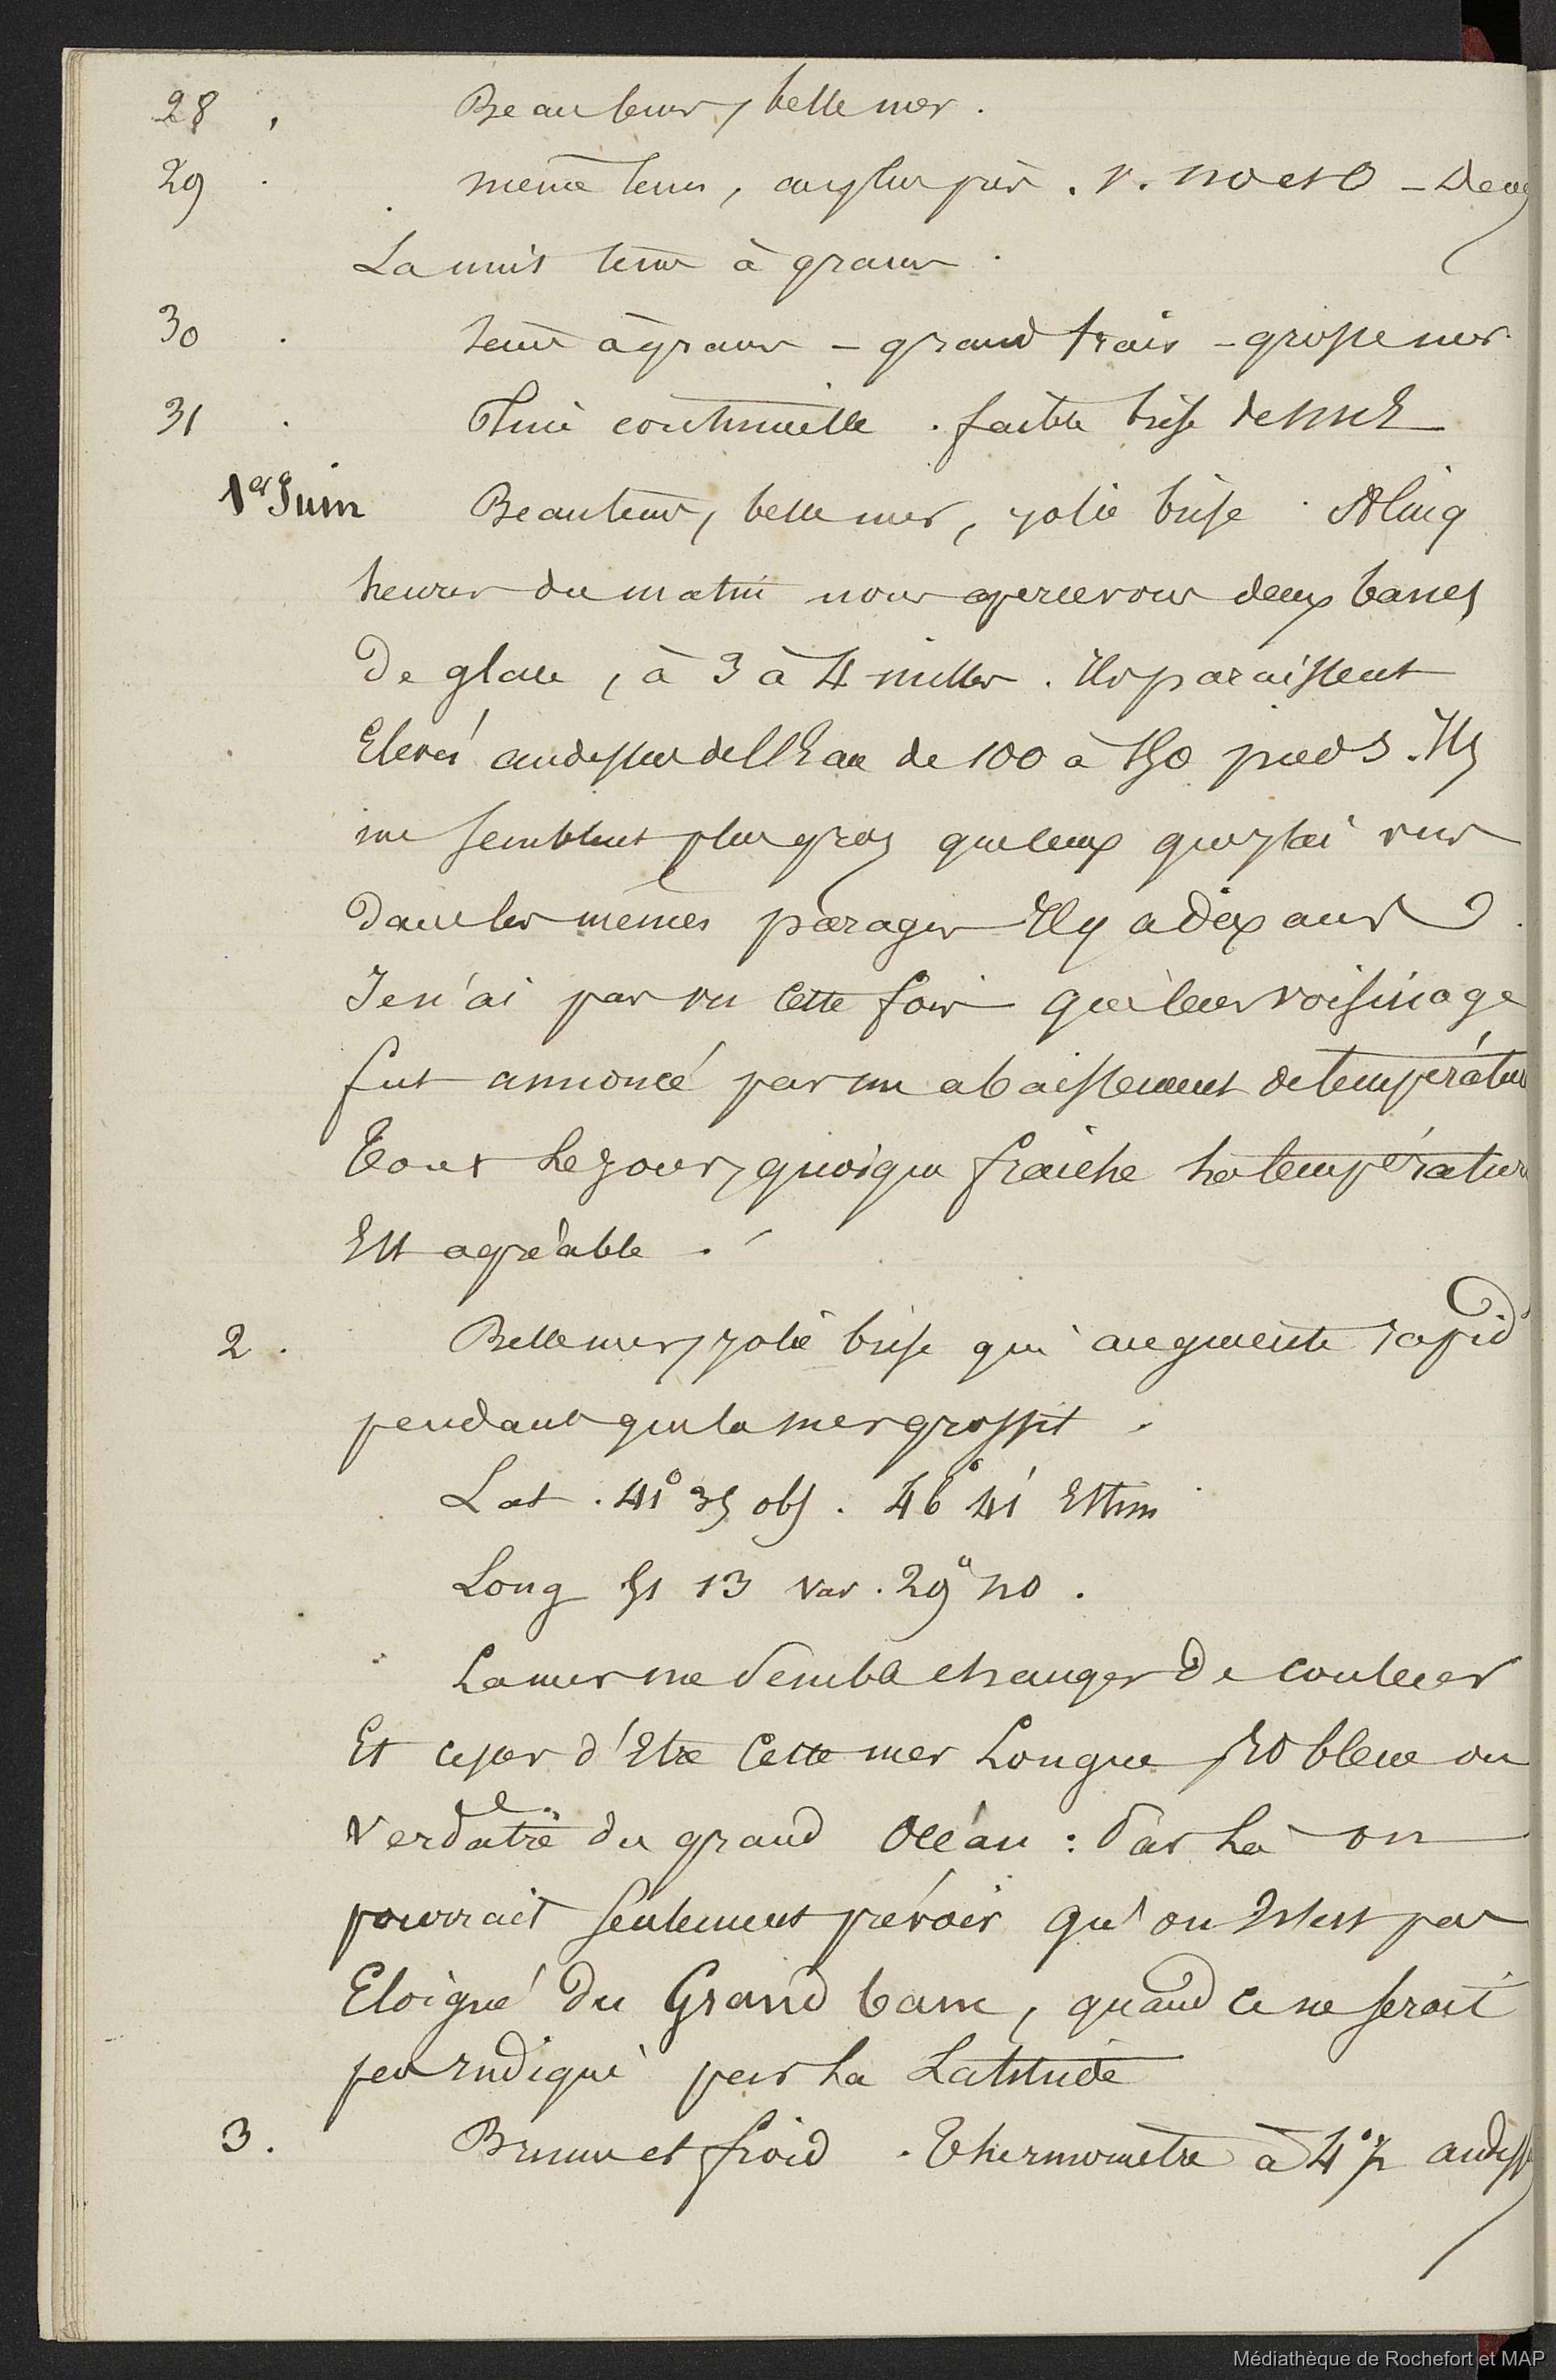 28 , Beau tems, belle mer .
29 . même tems, au plus près . v. NO et O –
La nuit tems à grains .
30 . tems à grains – grand frais – grosse mer.
31 . Pluie continuelle . faible brise de NNE
1er Juin Beau tems, belle mer, jolie brise . A Cinq
heures du matin nous apercevons deux bancs
De glace , à 3 à 4 milles . Ils paraissent
Elevés au dessus de l'Eau de 100 à 150 pieds . Ils
me semblent plus gros que ceux que j'ai vus
Dans les mêmes parages Il y a dix ans
Je n'ai pas vu Cette fois que leur voisinage
fut annoncé par un abaissement de températur
Tout le jour, quoique fraiche la températur
Est agréable .
2 . Belle mer, jolie brise qui augmente rapid
pendant que la mer grossit .
Lat . 41° 35 obs . 46° 41' Estim
Long 51 13 Var . 29° NO .
La mer me semble changer De couleur
Et cesser d'Etre Cette mer Longue bleue ou
Verdatre du grand Océan : Par La on
pourrait seulement prévoir qu'on N'est pas
Eloigné du Grand banc , quand ce ne serait
pas Indiqué par La Latitude
3 . Brume et froid . Thermomètre à 4°½ audess
Médiathèque de Rochefort et MAP